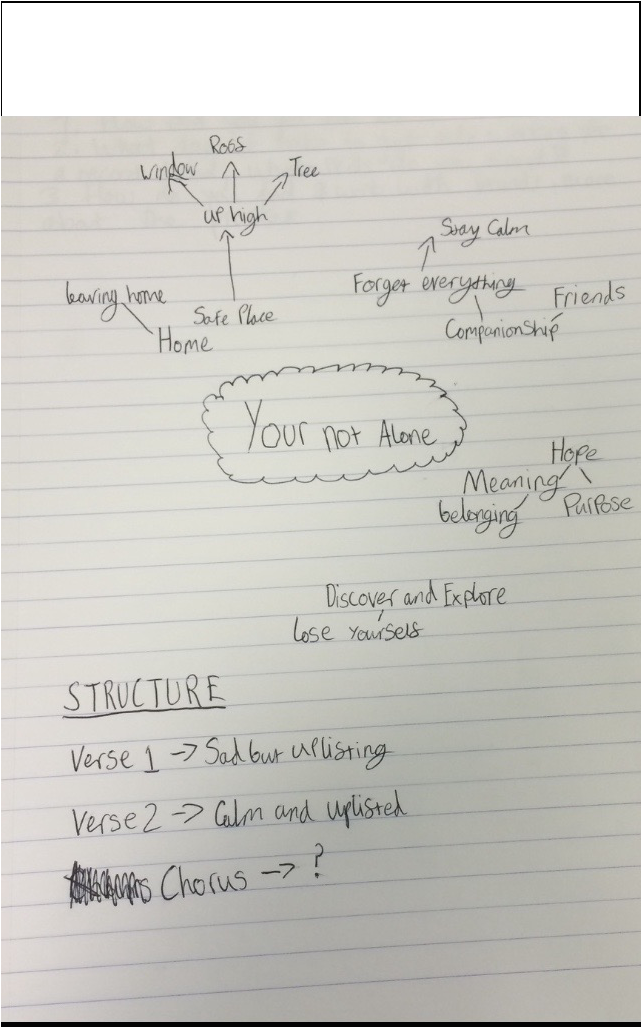 Roof
Window
Tree
up high
Stay Calm
Forget everything
leaving home
Friends
Safe Place
Companionship
Home
Your not Alone
Hope
Meaning
belonging
Purpose
Discover and Explore
lose yourself
STRUCTURE
Verse 1 -> Sad but uplifting
Verse 2 -> Calm and uplifted
Chorus -> ?